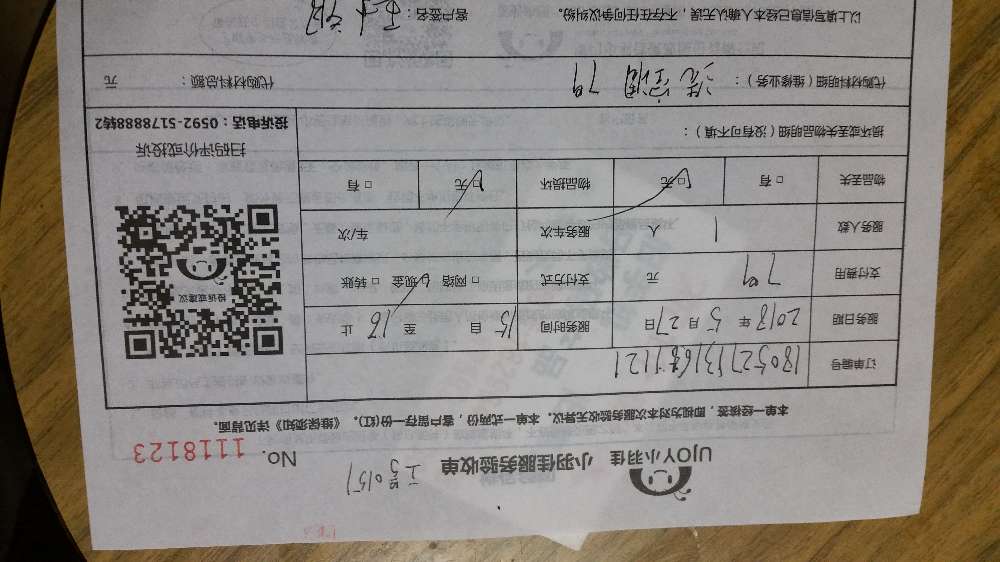 工号0151
UJOY小羽佳 小羽佳服务验收单 No. 1118123
本单一经接签，即视为对本次服务验收无异议。本单一式两份，客户留存一份(红)。《维保须知》详见背面。
订单编号
服务日期 2018年5月27日 服务时间 15 自 至 16 止
支付费用 79 元 支付方式 □网络 □现金 □转账
服务人数 1 人 服务车次 车/次
物品丢失 □有 □无 物品损坏 □无 □有
损坏或丢失物品明细（没有可不填）：
投诉或建议
扫码评价或投诉
投诉电话：0592-5178888转2
代购材料明细（维修业务）： 洗空调 79 代购材料总额： 元
以上填写信息已经本人确认无误，不存在任何争议纠纷。 客户签名：